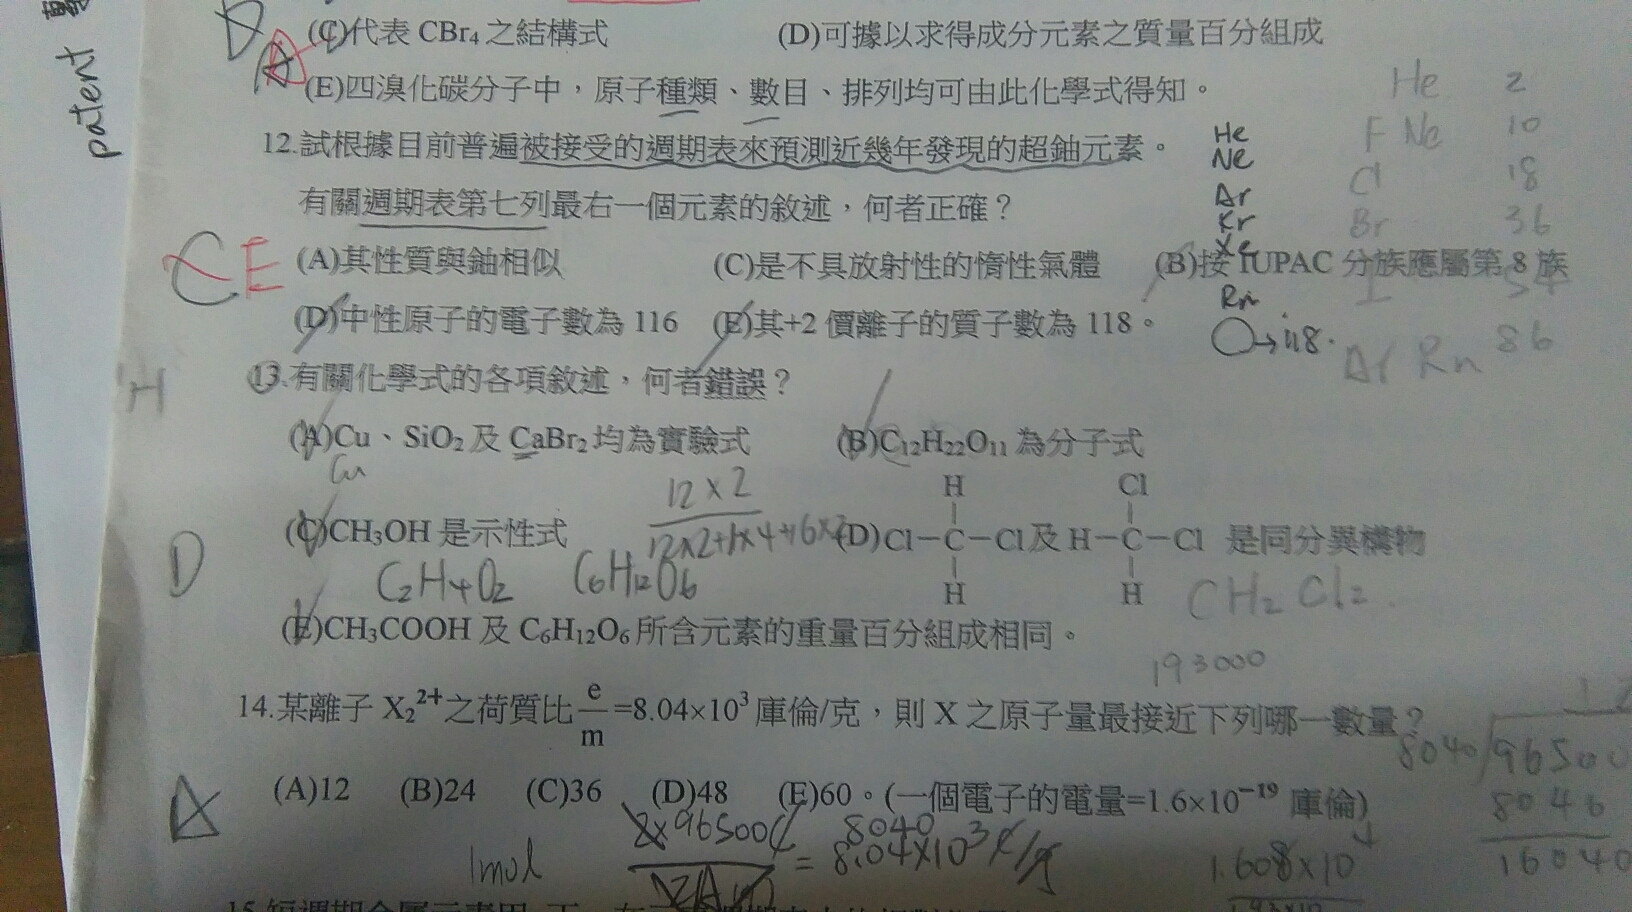 patent
D A (C)代表 CBr₄ 之結構式 (D)可據以求得成分元素之質量百分組成
(E)四溴化碳分子中，原子種類、數目、排列均可由此化學式得知。
He 2
12.試根據目前普遍被接受的週期表來預測近幾年發現的超鈾元素。
He F Ne 10
Ne
有關週期表第七列最右一個元素的敘述，何者正確？
Ar Cl 18
Kr Br 36
CE (A)其性質與鈾相似 (C)是不具放射性的惰性氣體 (B)按 IUPAC 分族應屬第 8 族
Xe I 54
Rn
(D)中性原子的電子數為 116 (E)其+2 價離子的質子數為 118。
O→118.
Ar Rn 86
H 13.有關化學式的各項敘述，何者錯誤？
(A)Cu、SiO₂及 CaBr₂均為實驗式 (B)C₁₂H₂₂O₁₁ 為分子式
Cu
12×2
12×2+1×4+16×2
H Cl
D (C)CH₃OH 是示性式 (D)Cl−C−Cl及 H−C−Cl 是同分異構物
H H
C₂H₄O₂ C₆H₁₂O₆ CH₂Cl₂.
(E)CH₃COOH 及 C₆H₁₂O₆所含元素的重量百分組成相同。
193000
14.某離子 X₂²⁺之荷質比 e/m =8.04×10³庫倫/克，則 X 之原子量最接近下列哪一數量？
8040 96500
A (A)12 (B)24 (C)36 (D)48 (E)60。(一個電子的電量=1.6×10⁻¹⁹ 庫倫)
8040
2×96500C = 8.04×10³ C/g
16040
1mol
1.608×10⁴